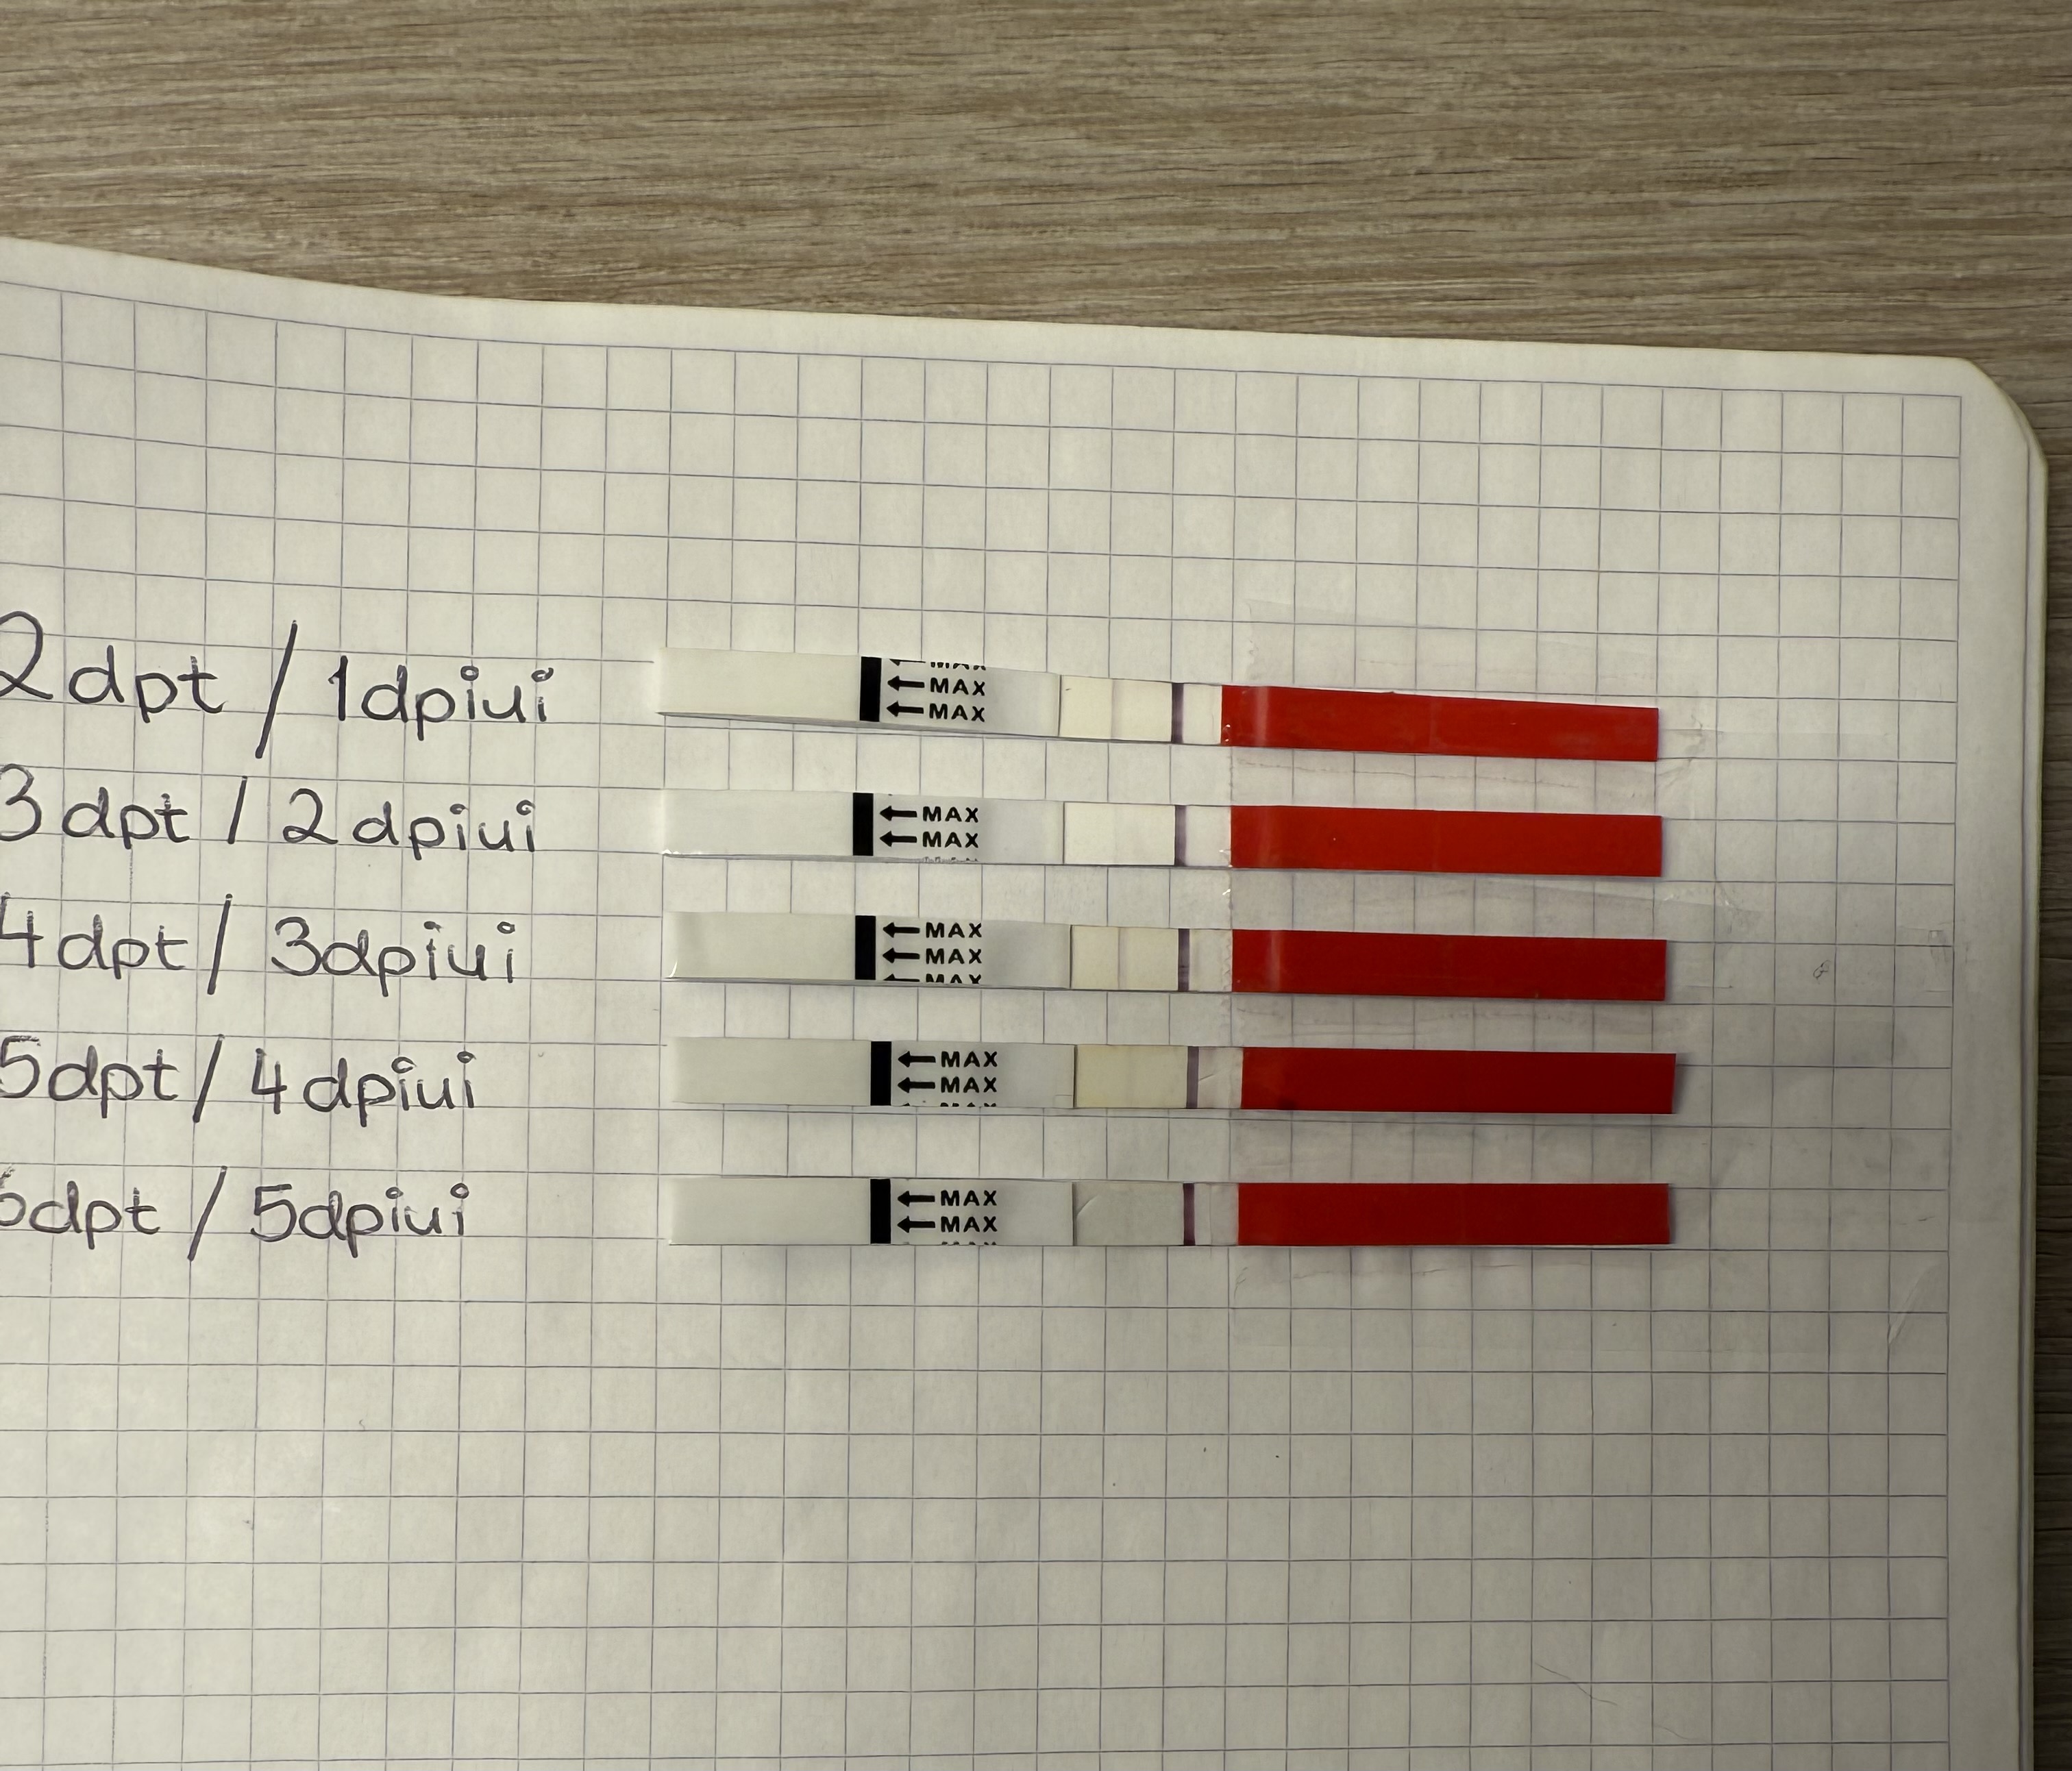 2dpt / 1dpiui
MAX
MAX
MAX
3dpt / 2dpiui
MAX
MAX
4dpt / 3dpiui
MAX
MAX
MAX
5dpt / 4dpiui
MAX
MAX
6dpt / 5dpiui
MAX
MAX